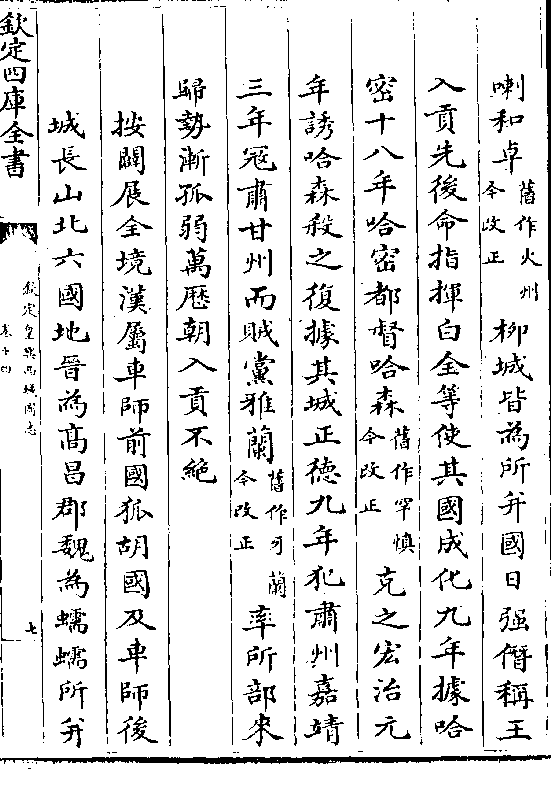 喇和卓舊作火州今改正柳城皆為所并國日强僭稱王
入貢先後命指揮白全等使其國成化九年據哈
密十八年哈密都督哈森舊作罕慎今改正克之宏治元
年誘哈森殺之復據其城正德九年犯肅州嘉靖
三年冦肅甘州而賊黨雅蘭舊作牙蘭今改正率所部來
歸勢漸孤弱萬歴朝入貢不絶
按闢展全境漢屬車師前國狐胡國及車師後
城長山北六國地晉為髙昌郡魏為蠕蠕所并
欽定四庫全書
欽定皇輿西域圖志
卷十四
七